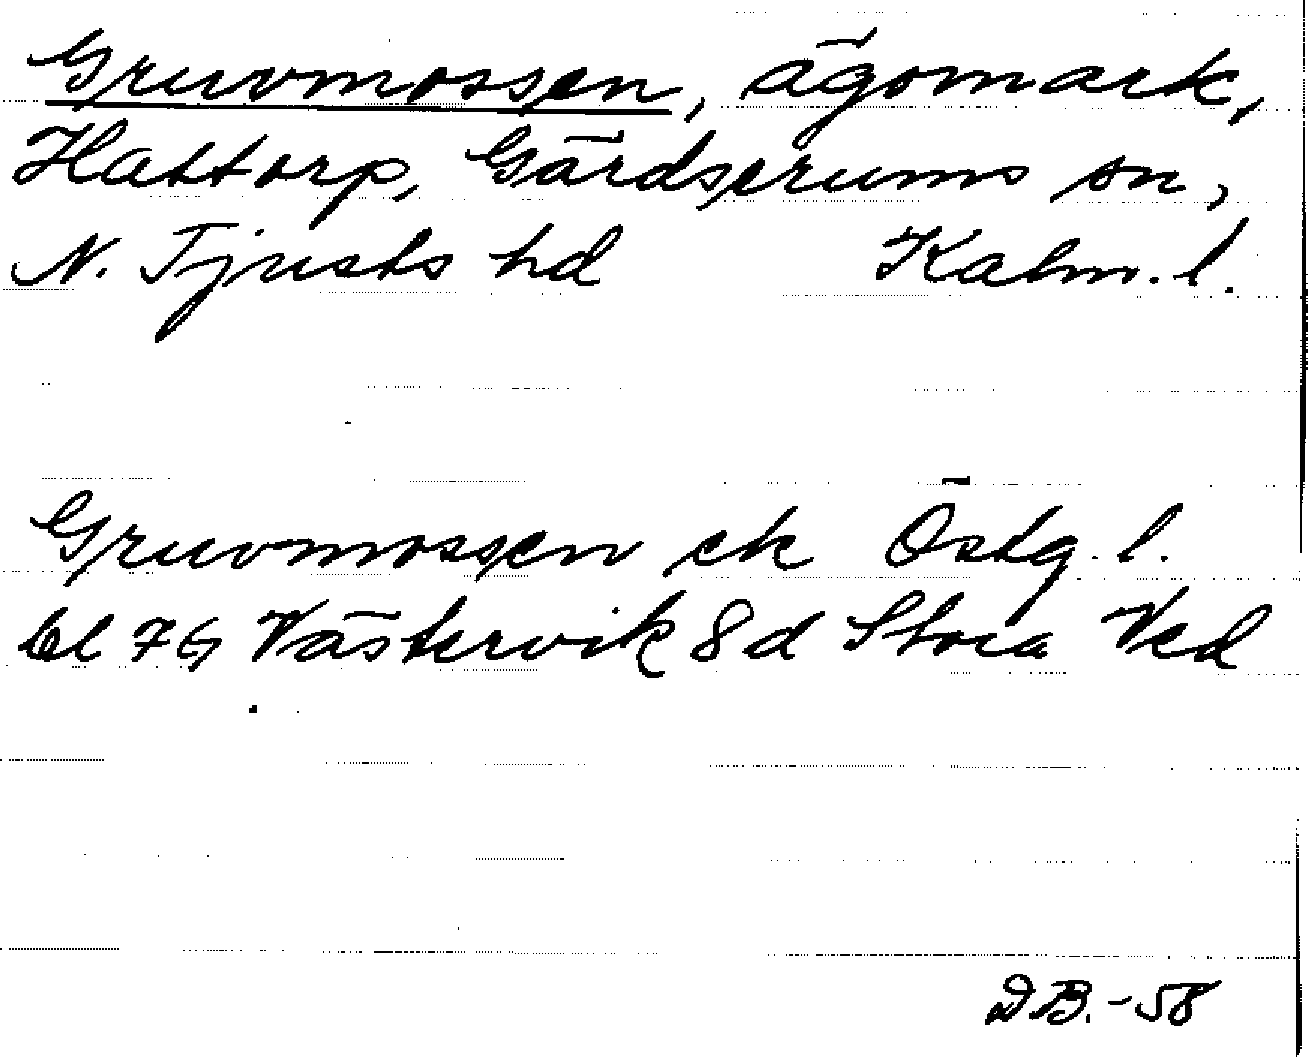 Gruvmossen, ägomark,
Hattorp, Gärdserums sn,
N. Tjusts hd Kalm. l.
Gruvmossen ek Östg. l.
bl 7G Västervik 8d Stora Ved
D.B.-58